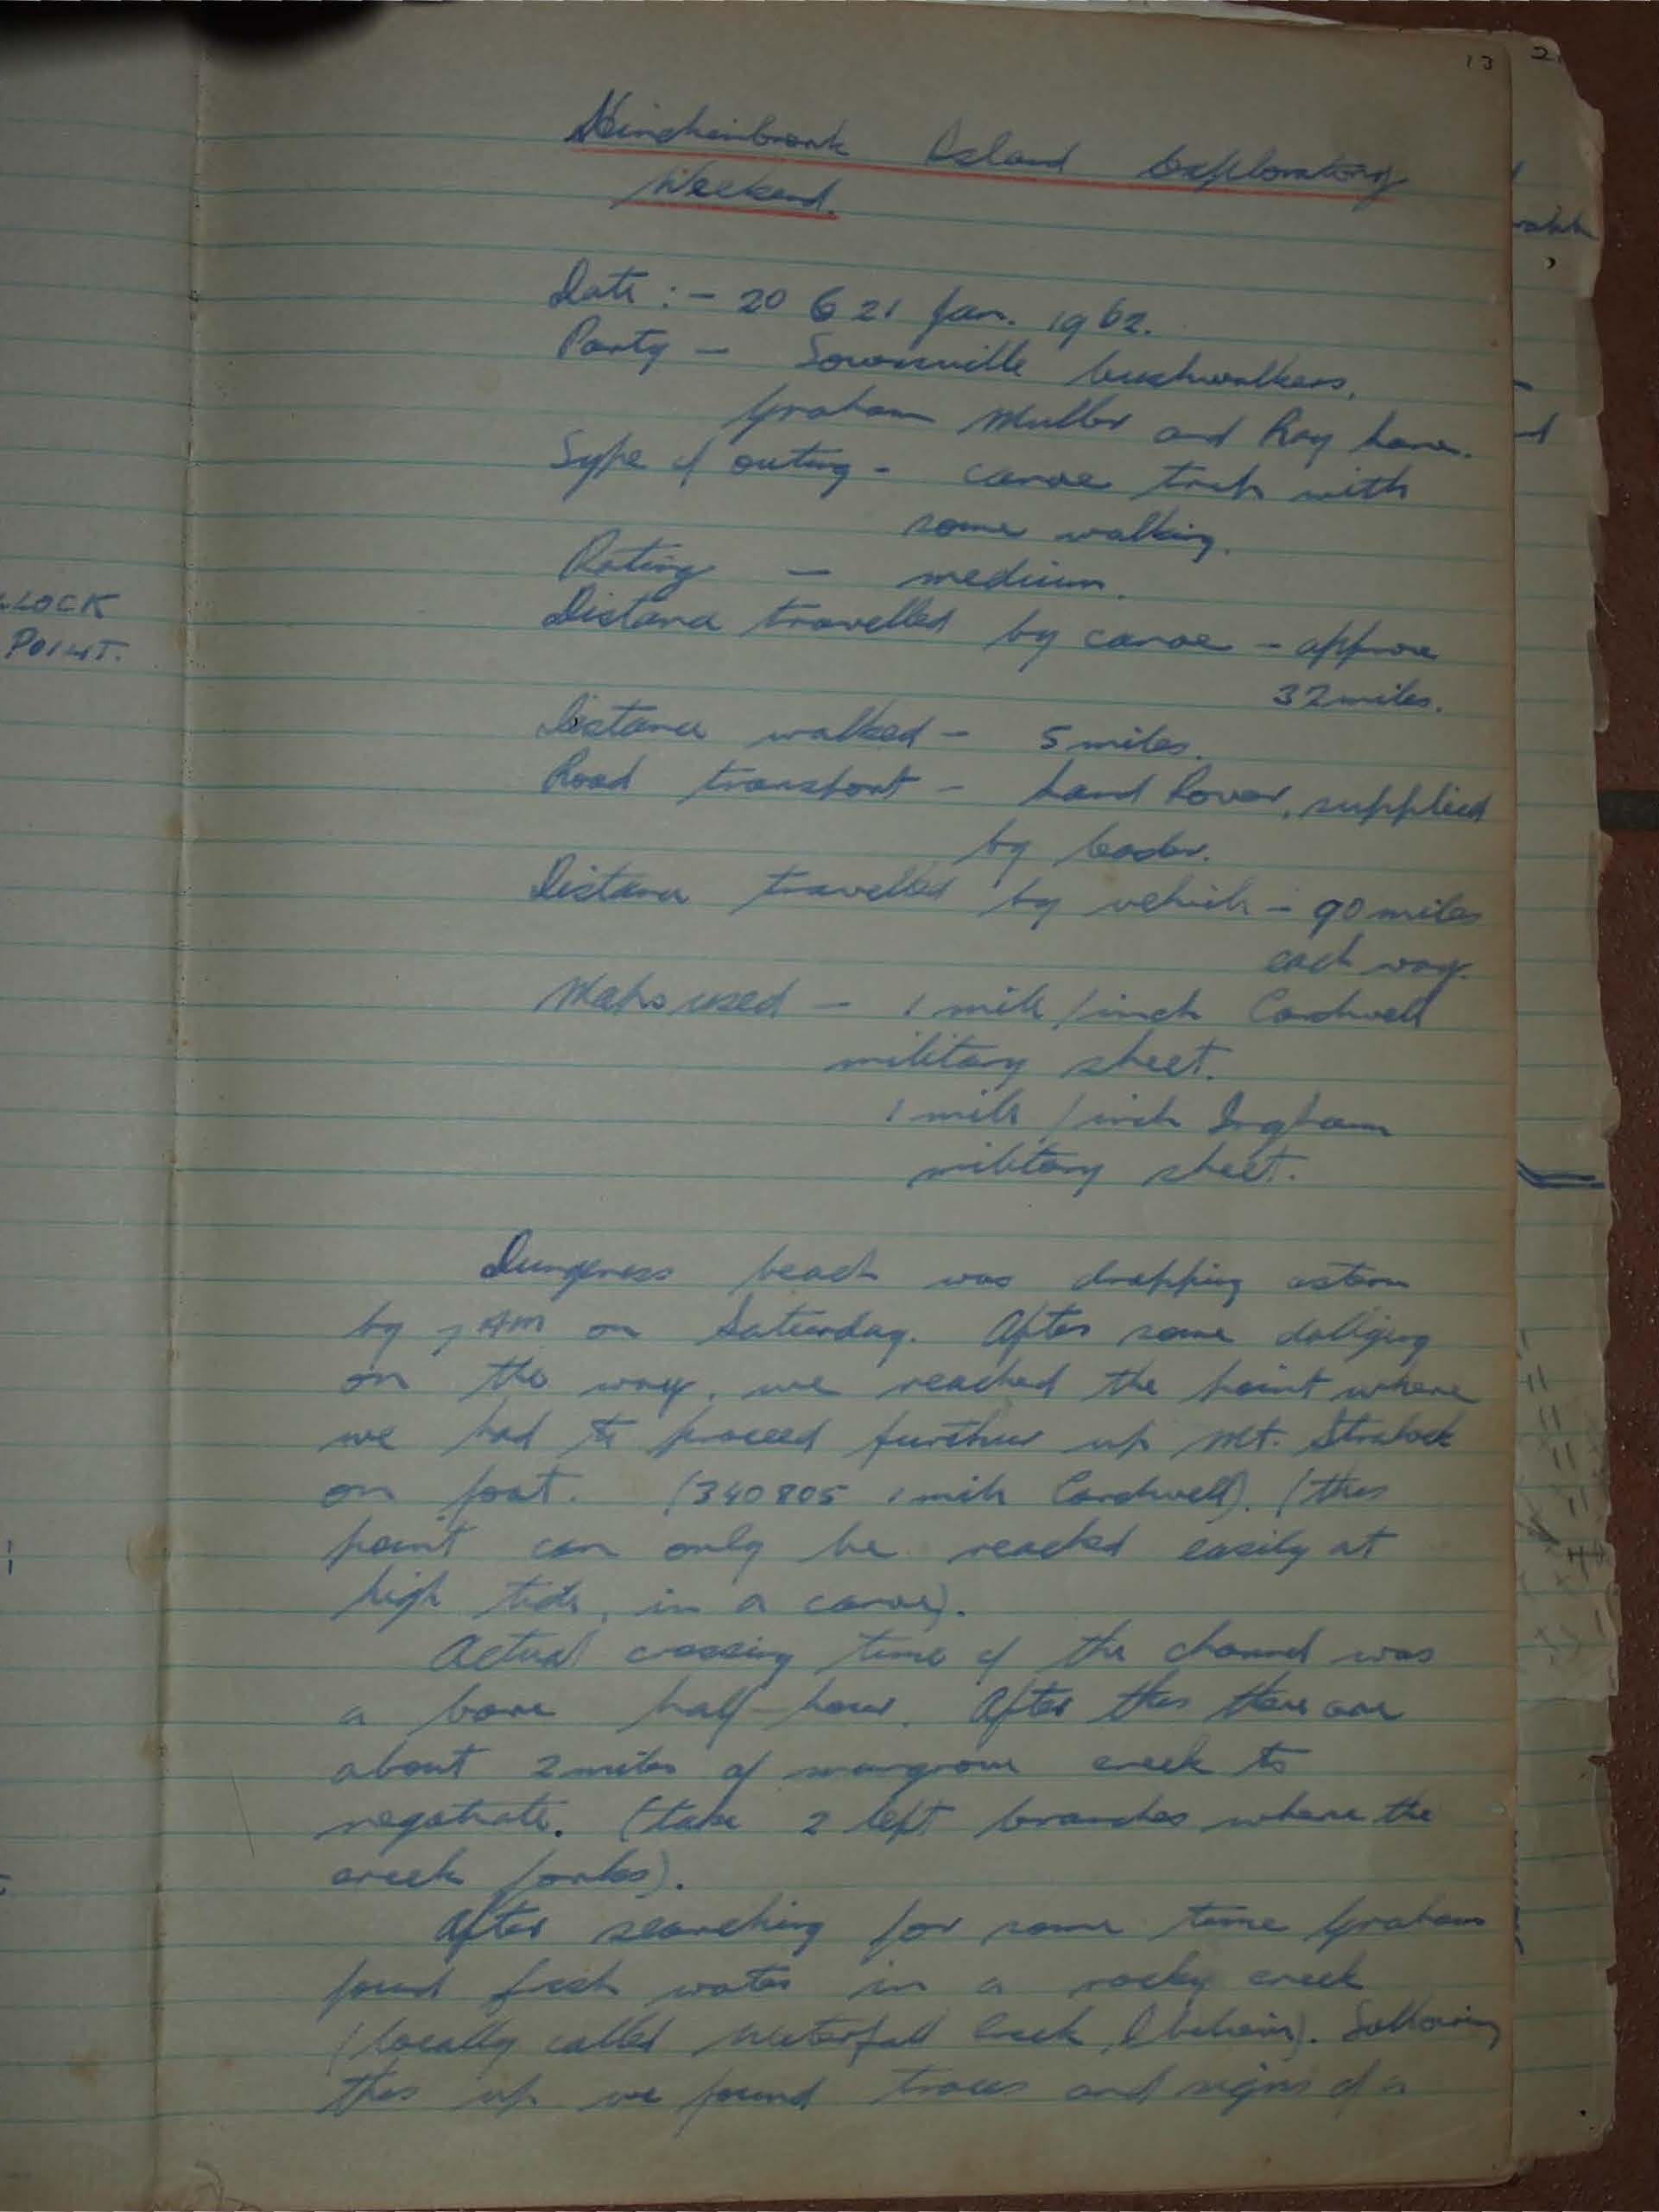 13
Hinchinbrook Island Exploratory
Weekend.
Date : - 20 & 21 Jan. 1962.
Party - Townsville bushwalkers,
Graham Muller and Reg
Type of outing - canoe trip with
some walking.
Rating - medium.
Distance travelled by canoe - approx
32 miles.
Distance walked - 5 miles.
Road transport - Land Rover, supplied
by leader.
Distance travelled by vehicle - 90 miles
each way.
Maps used - 1 mile / inch Cardwell
military sheet.
1 mile / inch Ingham
military sheet.
LOCK
POINT.
Dungeness beach was dropping astern
by 7 AM on Saturday. After some
on the way, we reached the point where
we had to proceed further up Mt. Straloch
on foot. (340805 1 mile Cardwell). (this
point can only be reached easily at
high tide, in a canoe).
Actual crossing time of the channel was
a bare half-hour. After this there are
about 2 miles of mangrove creek to
negotiate. (take 2 left branches where the
creek forks).
After searching for some time Graham
found fresh water in a rocky creek
(locally called Waterfall Creek, I believe). Following
this up we found traces and signs of a